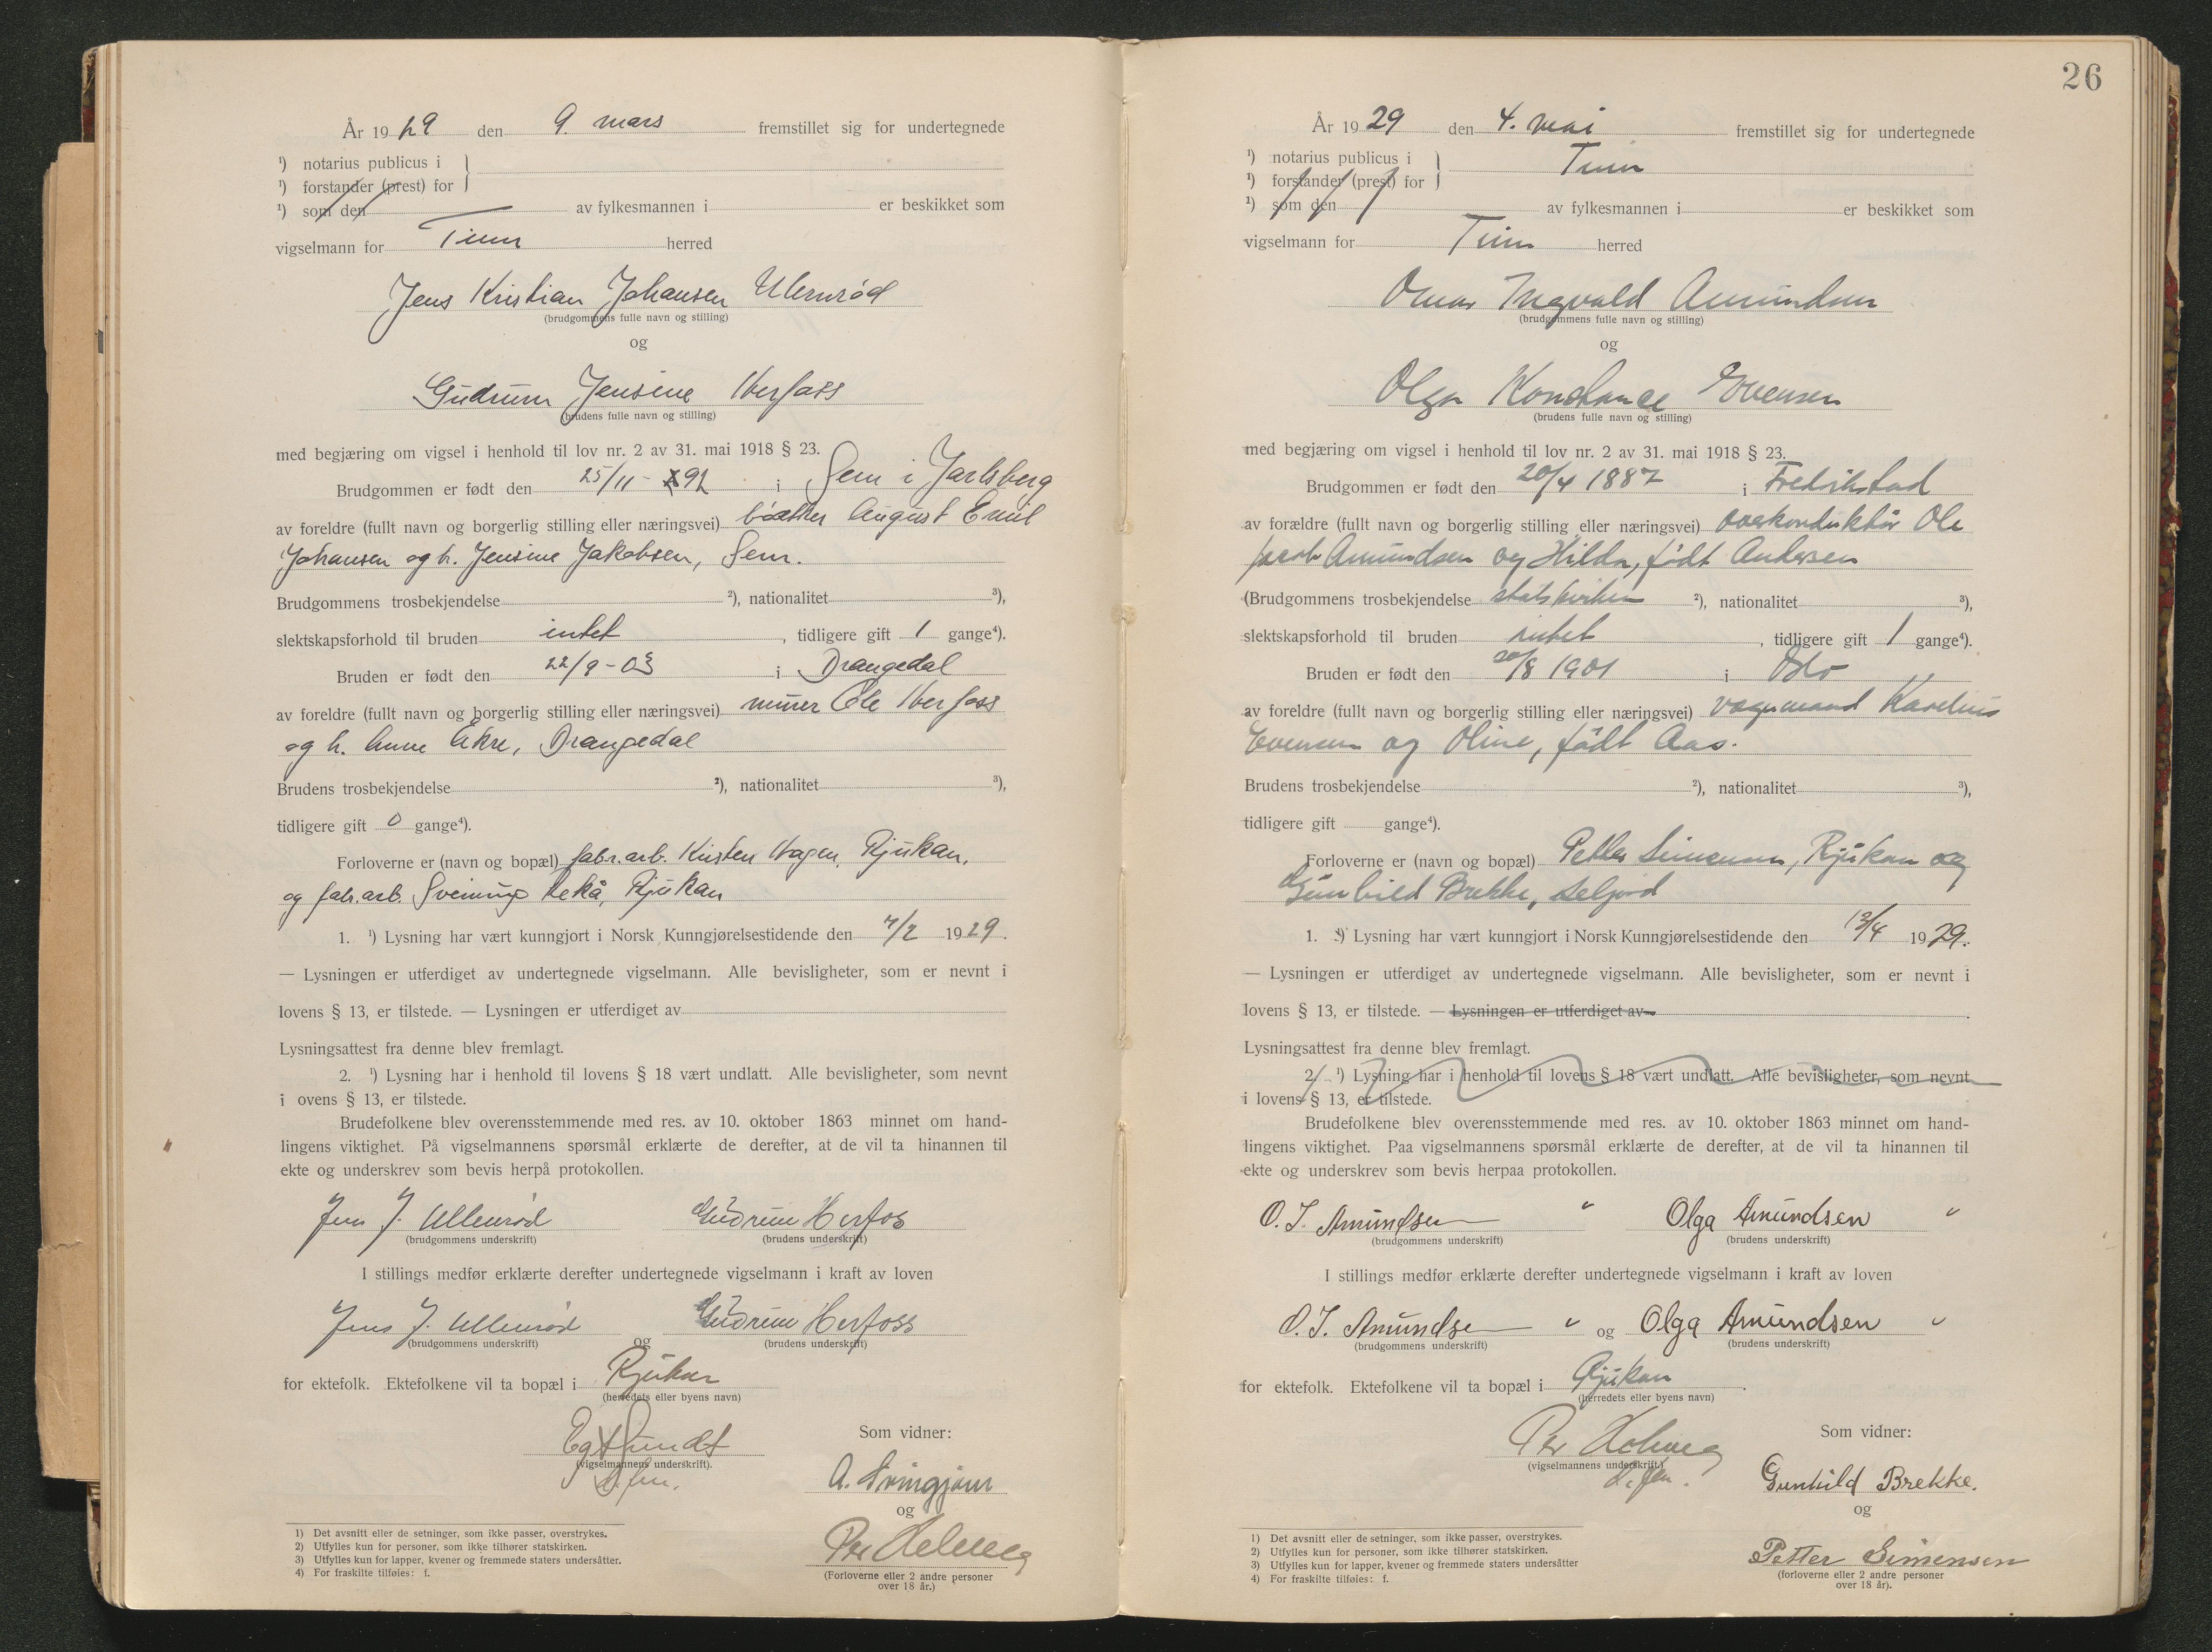 År 19 29 den 9. mars fremstillet sig for undertegnede
¹) notarius publicus i
¹) forstander (prest) for
¹) som den av fylkesmannen i er beskikket som
vigselmann for Tinn herred
Jens Kristian Johansen Ulenrød
(brudgommens fulle navn og stilling)
og
Gudrun Jensine Herfoss
(brudens fulle navn og stilling)
med begjæring om vigsel i henhold til lov nr. 2 av 31. mai 1918 § 23.
Brudgommen er født den 25/11 - 92 i Sem i Jarlsberg
av foreldre (fullt navn og borgerlig stilling eller næringsvei) bøkker August Emil
Johansen og h. Jensine Jakobsen, Sem.
Brudgommens trosbekjendelse ²), nationalitet ³),
slektskapsforhold til bruden intet , tidligere gift 1 gange⁴).
Bruden er født den 22/9 - 03 i Drangedal
av foreldre (fullt navn og borgerlig stilling eller næringsvei) murer Ole Herfoss
og h. Anne Økre, Drangedal
Brudens trosbekjendelse ²), nationalitet ³),
tidligere gift 0 gange⁴).
Forloverne er (navn og bopæl) fabr.arb. Kristen Hagen, Rjukan,
og fabr.arb. Sveinung Rekå, Rjukan
1. ¹) Lysning har vært kunngjort i Norsk Kunngjørelsestidende den 7/2 1929.
— Lysningen er utferdiget av undertegnede vigselmann. Alle bevisligheter, som er nevnt i
lovens § 13, er tilstede. — Lysningen er utferdiget av
Lysningsattest fra denne blev fremlagt.
2. ¹) Lysning har i henhold til lovens § 18 vært undlatt. Alle bevisligheter, som nevnt
i ovens § 13, er tilstede.
Brudefolkene blev overensstemmende med res. av 10. oktober 1863 minnet om hand-
lingens viktighet. På vigselmannens spørsmål erklærte de derefter, at de vil ta hinannen til
ekte og underskrev som bevis herpå protokollen.
Jens J. Ullenrød Gudrun Herfos
(brudgommens underskrift) (brudens underskrift)
I stillings medfør erklærte derefter undertegnede vigselmann i kraft av loven
Jens J. Ullenrød og Gudrun Herfoss
(brudgommens underskrift) (brudens underskrift)
for ektefolk. Ektefolkene vil ta bopæl i Rjukan
(herredets eller byens navn)
Sundt
(vigselmannens underskrift).
Som vidner:
A. Svingjom
og
Per Holmeg
(Forloverne eller 2 andre personer
over 18 år.)
1) Det avsnitt eller de setninger, som ikke passer, overstrykes.
2) Utfylles kun for personer, som ikke tilhører statskirken.
3) Utfylles kun for lapper, kvener og fremmede staters undersåtter.
4) For fraskilte tilføies: f.
26
År 19 29 den 4. mai fremstillet sig for undertegnede
¹) notarius publicus i Tinn
¹) forstander (prest) for
¹) som den av fylkesmannen i er beskikket som
vigselmann for Tinn herred
Omar Ingvald Amundsen
(brudgommens fulle navn og stilling)
og
Olga Konstance Evensen
(brudens fulle navn og stilling)
med begjæring om vigsel i henhold til lov nr. 2 av 31. mai 1918 § 23.
Brudgommen er født den 20/4 1887 i Fredrikstad
av forældre (fullt navn og borgerlig stilling eller næringsvei) overkonduktør Ole
Jacob Amundsen og Hilda, født Andersen
(Brudgommens trosbekjendelse statskirken ²), nationalitet ³),
slektskapsforhold til bruden intet , tidligere gift 1 gange⁴).
Bruden er født den 20/8 1901 i Oslo
av foreldre (fullt navn og borgerlig stilling eller næringsvei) vognmand Karelius
Evensen og Oline, født Aas.
Brudens trosbekjendelse ²), nationalitet ³),
tidligere gift gange⁴).
Forloverne er (navn og bopæl) Petter Simensen, Rjukan og
Gunhild Brekke, Seljord
1. ¹) Lysning har vært kunngjort i Norsk Kunngjørelsestidende den 13/4 1929.
— Lysningen er utferdiget av undertegnede vigselmann. Alle bevisligheter, som er nevnt i
lovens § 13, er tilstede. — Lysningen er utferdiget av
Lysningsattest fra denne blev fremlagt.
2. ¹) Lysning har i henhold til lovens § 18 vært undlatt. Alle bevisligheter, som nevnt
i lovens § 13, er tilstede.
Brudefolkene blev overensstemmende med res. av 10. oktober 1863 minnet om hand-
lingens viktighet. Paa vigselmannens spørsmål erklærte de derefter, at de vil ta hinannen til
ekte og underskrev som bevis herpaa protokollen.
O. I. Amundsen " Olga Amundsen "
(brudgommens underskrift) (brudens underskrift)
I stillings medfør erklærte derefter undertegnede vigselmann i kraft av loven
O. I. Amundsen " og Olga Amundsen "
(brudgommens underskrift) (brudens underskrift)
for ektefolk. Ektefolkene vil ta bopæl i Rjukan
(herredets eller byens navn)
Per Holmeg
(vigselmannens underskrift)
Som vidner:
Gunhild Brekke.
og
Petter Simensen
(forloverne eller 2 andre personer
over 18 år).
1) Det avsnitt eller de setninger, som ikke passer, overstrykes.
2) Utfylles kun for personer, som ikke tilhører statskirken.
3) Utfylles kun for lapper, kvener og fremmede staters undersåtter
4) For fraskilte tilføies: f.